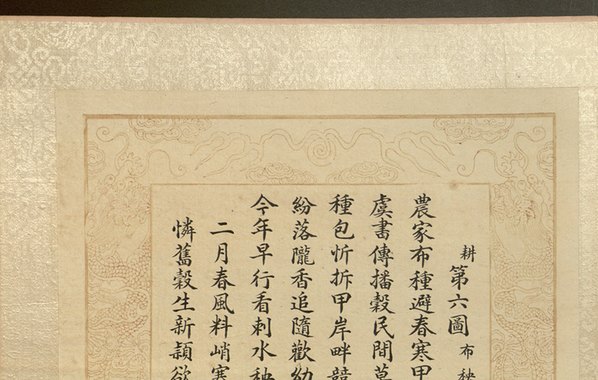 耕第六圖布秧
農家布種避春寒甲
虞書傳播穀民間莫
種包忻拆甲岸畔競
紛落隴香追隨歡幼
今年早行看刺水秧
二月春風料峭寒
憐舊穀生新穎欲